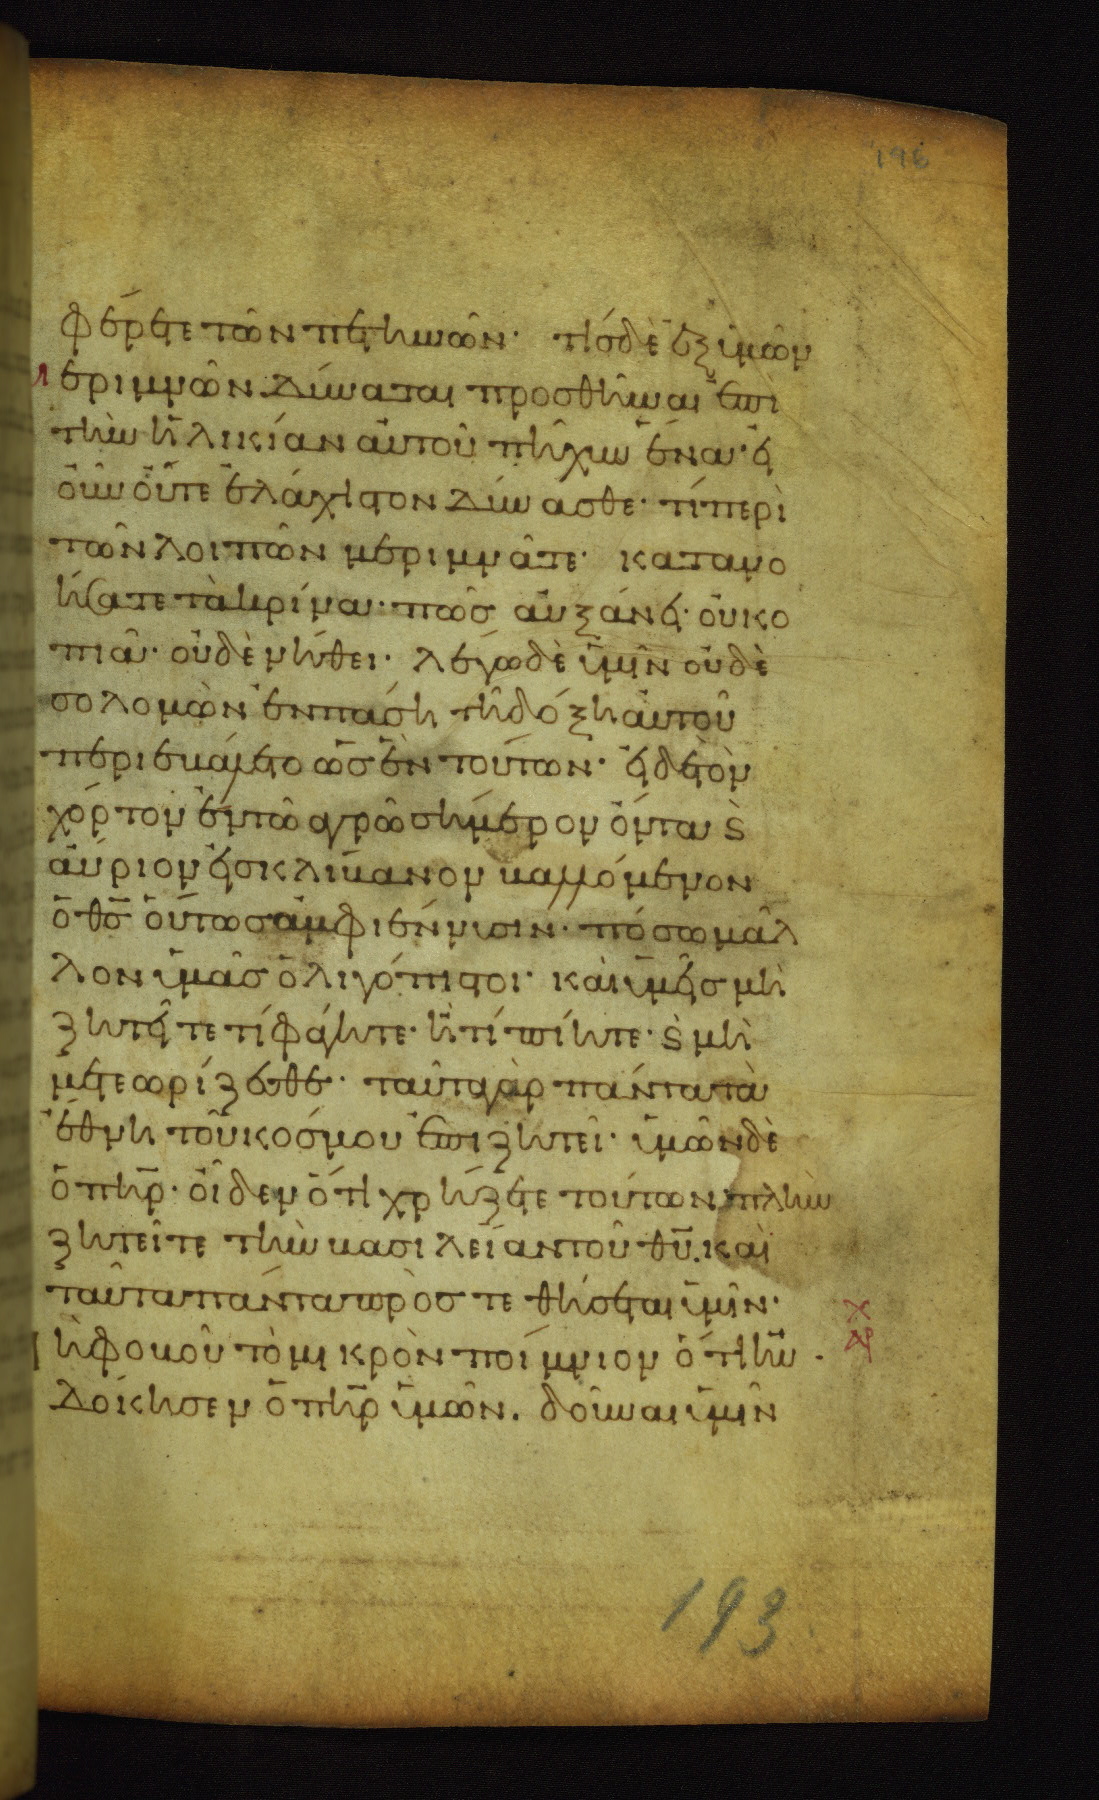 196
φέρετε τῶν πετηνῶν· τίς δὲ ἐξ ὑμῶν
μεριμνῶν δύναται προσθῆναι ἐπὶ
τὴν ἡλικίαν αὐτοῦ πῆχυν ἕνα· εἰ
οὖν οὔτε ἐλάχιστον δύνασθε· τί περὶ
τῶν λοιπῶν μεριμνᾶτε· κατανο
ήσατε τὰ κρίνα· πῶς αὐξάνει· οὐ κο
πιᾶ· οὐδὲ νήθει· λέγω δὲ ὑμῖν οὐδὲ
σολομὼν ἐν πάση τῆ δόξη αὐτοῦ
περιεβάλετο ὡς ἓν τούτων· εἰ δὲ τὸν
χόρτον ἐν τῶ ἀγρῶ σήμερον ὄντα ϗ
αὔριον εἰς κλίβανον βαλλόμενον
ὁ θς οὕτως ἀμφιέννυσιν· πόσω μᾶλ
λον ὑμᾶς ὀλιγόπιστοι· καὶ ὑμεῖς μὴ
ζητεῖτε τί φάγητε· ἢ τί πίητε· ϗ μὴ
μετεωρίζεσθε· ταῦτα γὰρ πάντα τὰ
ἔθνη τοῦ κόσμου ἐπιζητεῖ· ὑμῶν δὲ
ὁ πηρ· οἶδεν ὅτι χρήζετε τούτων πλὴν
ζητεῖτε τὴν βασιλείαν τοῦ θυ. καὶ
ταῦτα πάντα προστεθήσεται ὑμῖν·
μὴ φοβοῦ τὸ μικρὸν ποίμνιον ὅτι ηὐ
δόκησεν ὁ πηρ ὑμῶν. δοῦναι ὑμῖν
193